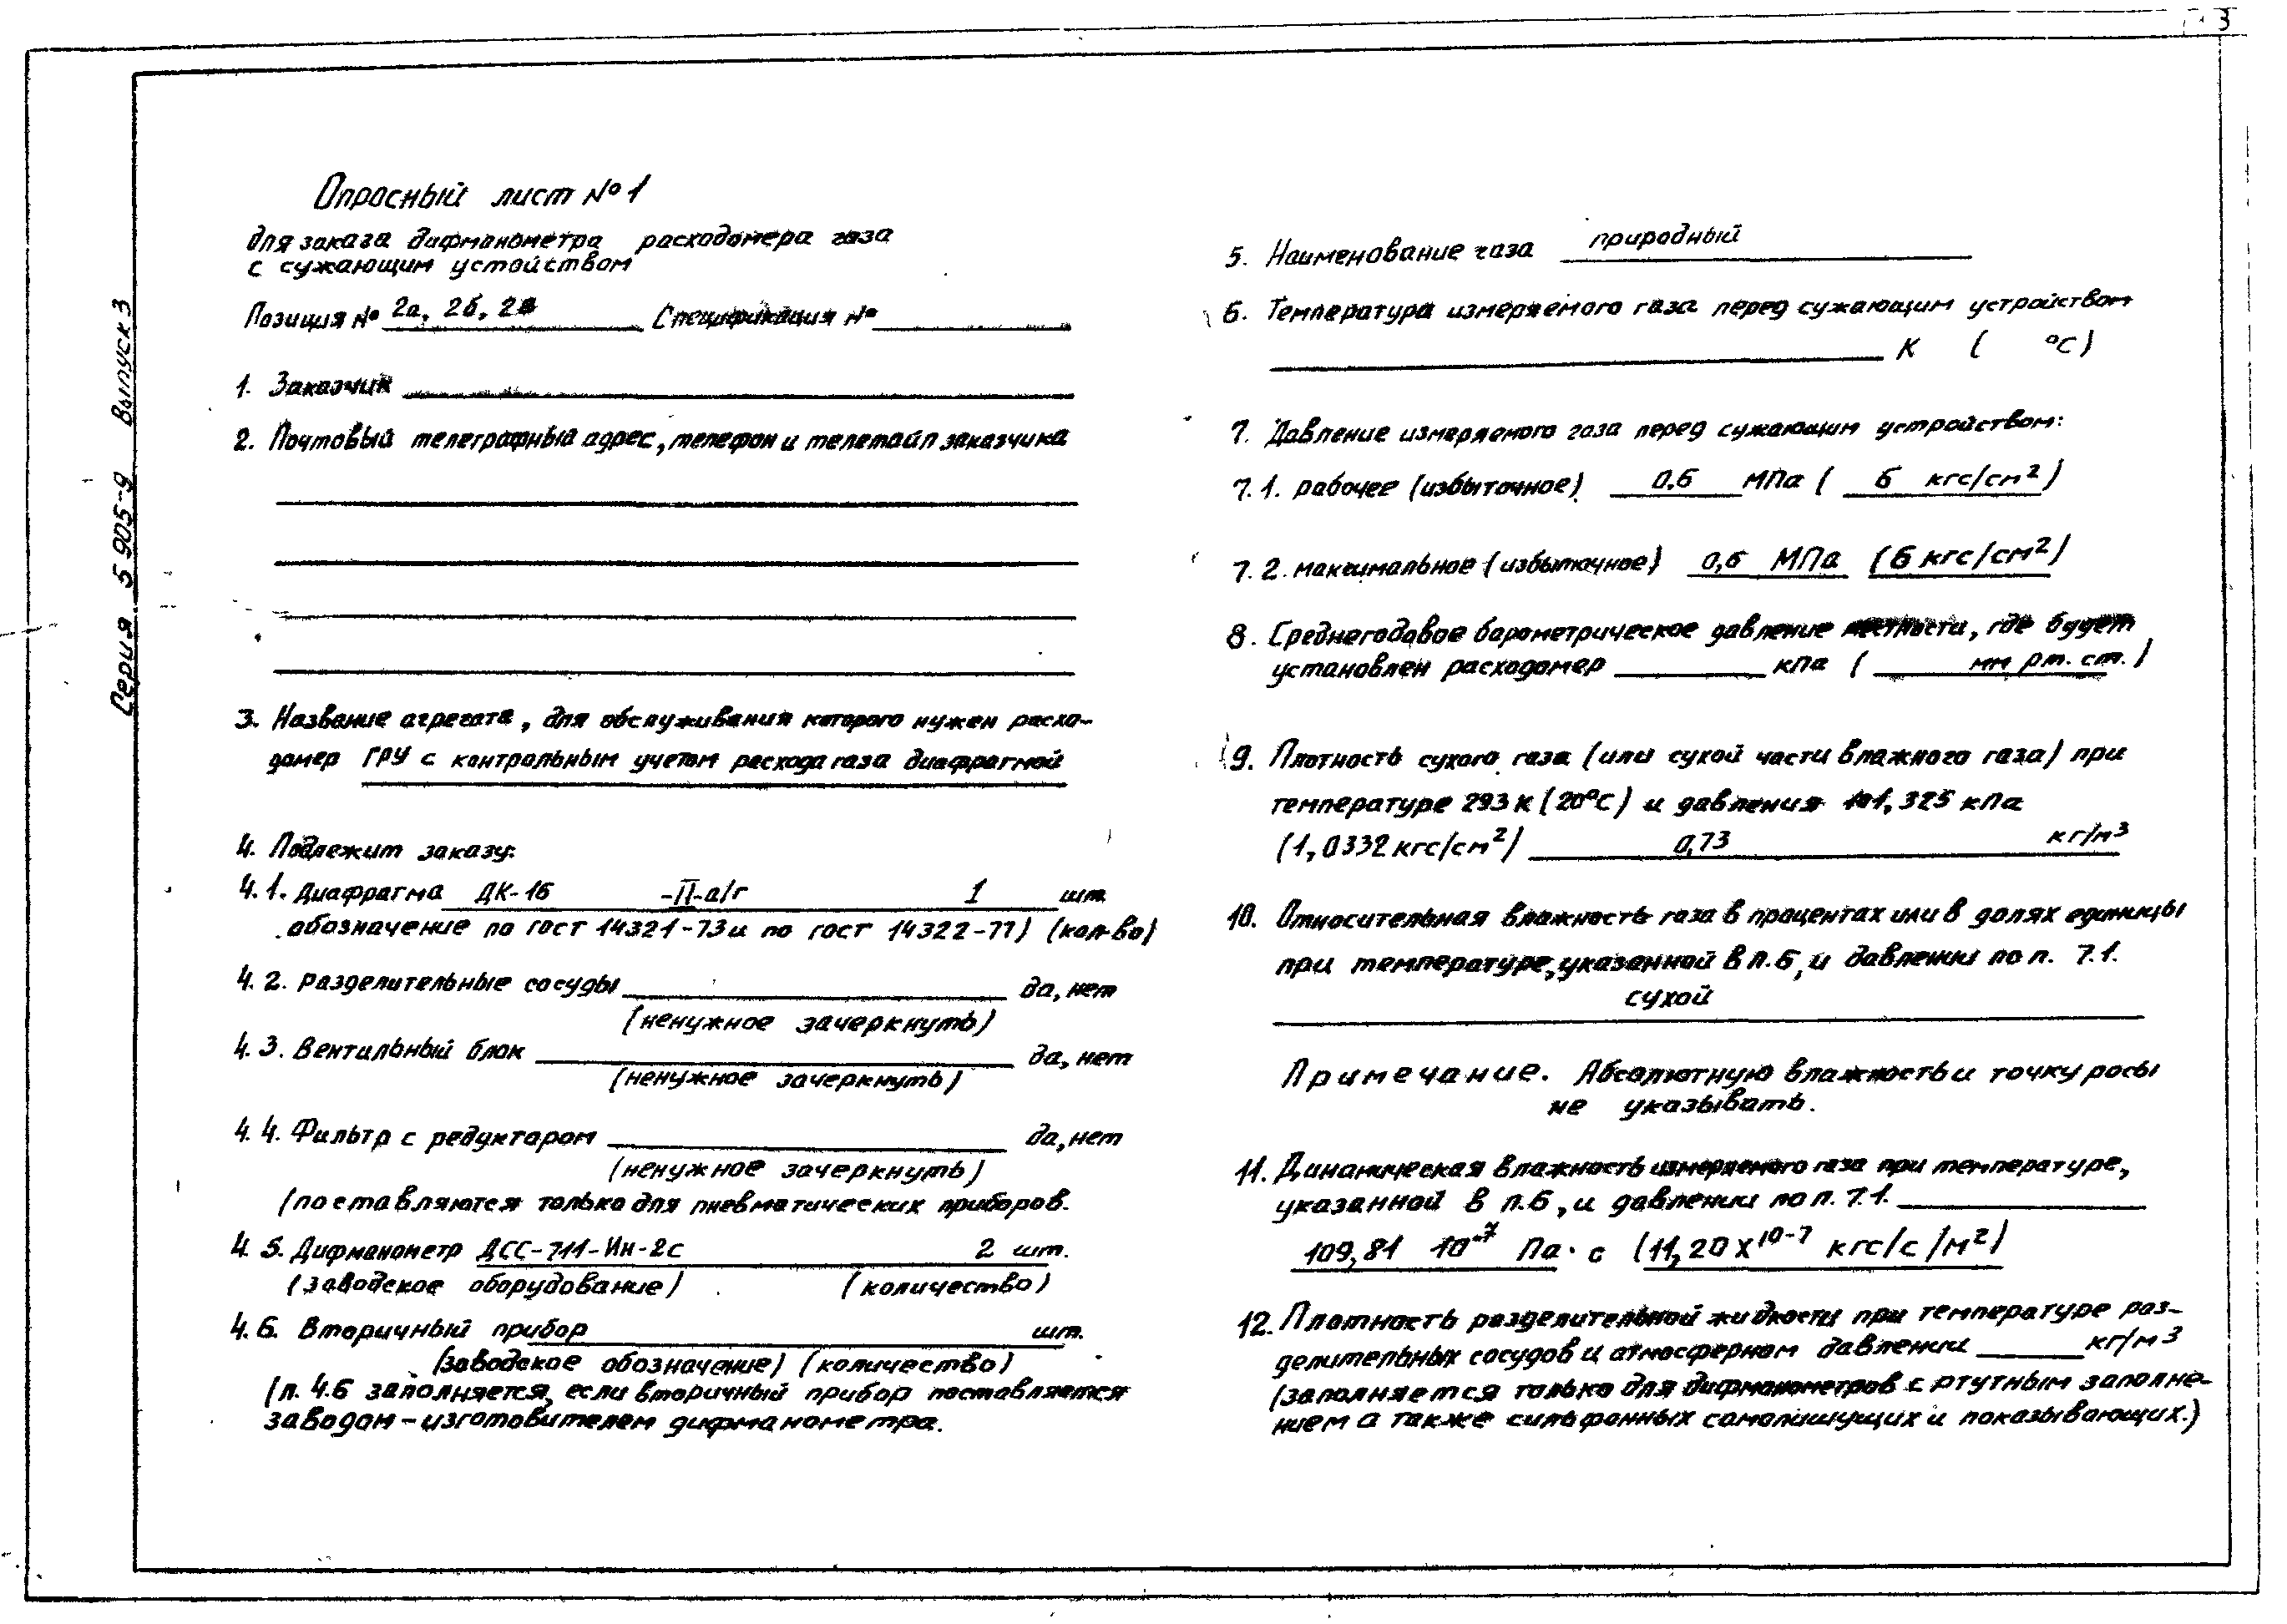 3
Серия 5 905-9 Выпуск 3
Опросный лист №1
для заказа дифманометра расходомера газа
с сужающим устойством
Позиция № 2а, 2б, 2в Спецификация №
1. Заказчик
2. Почтовый телеграфный адрес, телефон и телетайп заказчика
3. Название агрегата, для обслуживания которого нужен расхо-
домер ГРУ с контрольным учетом расхода газа диафрагмой
4. Подлежит заказу:
4.1. Диафрагма ДК-16 -II-а/г 1 шт.
обозначение по ГОСТ 14321-73 и по ГОСТ 14322-77) (кол-во)
4.2. Разделительные сосуды да, нет
(ненужное зачеркнуть)
4.3. Вентильный блок да, нет
(ненужное зачеркнуть)
4.4. Фильтр с редуктором да, нет
(ненужное зачеркнуть)
(поставляются только для пневматических приборов.
4.5. Дифманометр ДСС-711-Ин-2с 2 шт.
(заводское оборудование) (количество)
4.6. Вторичный прибор шт.
(заводское обозначение) (количество)
(п. 4.6 заполняется, если вторичный прибор поставляется
заводом-изготовителем дифманометра.
5. Наименование газа природный
6. Температура измеряемого газа перед сужающим устройством
К ( °С)
7. Давление измеряемого газа перед сужающим устройством:
7.1. рабочее (избыточное) 0.6 МПа ( 6 кгс/см²)
7.2. максимальное (избыточное) 0,6 МПа (6 кгс/см²)
8. Среднегодовое барометрическое давление местности, где будет
установлен расходомер кПа ( мм рт. ст.)
9. Плотность сухого газа (или сухой части влажного газа) при
температуре 293 К (20°С) и давления 101,325 кПа
(1,0332 кгс/см²) 0,73 кг/м³
10. Относительная влажность газа в процентах или в долях единицы
при температуре, указанной в п.6, и давлении по п. 7.1.
сухой
Примечание. Абсолютную влажность и точку росы
не указывать.
11. Динамическая влажность измеряемого газа при температуре,
указанной в п.6, и давлении по п. 7.1.
109,81 10⁻⁷ Па·с (11,20 х 10⁻⁷ кгс/с/м²)
12. Плотность разделительной жидкости при температуре раз-
делительных сосудов и атмосферном давлении кг/м³
(заполняется только для дифманометров с ртутным заполне-
нием а также сильфонных самопишущих и показывающих.)